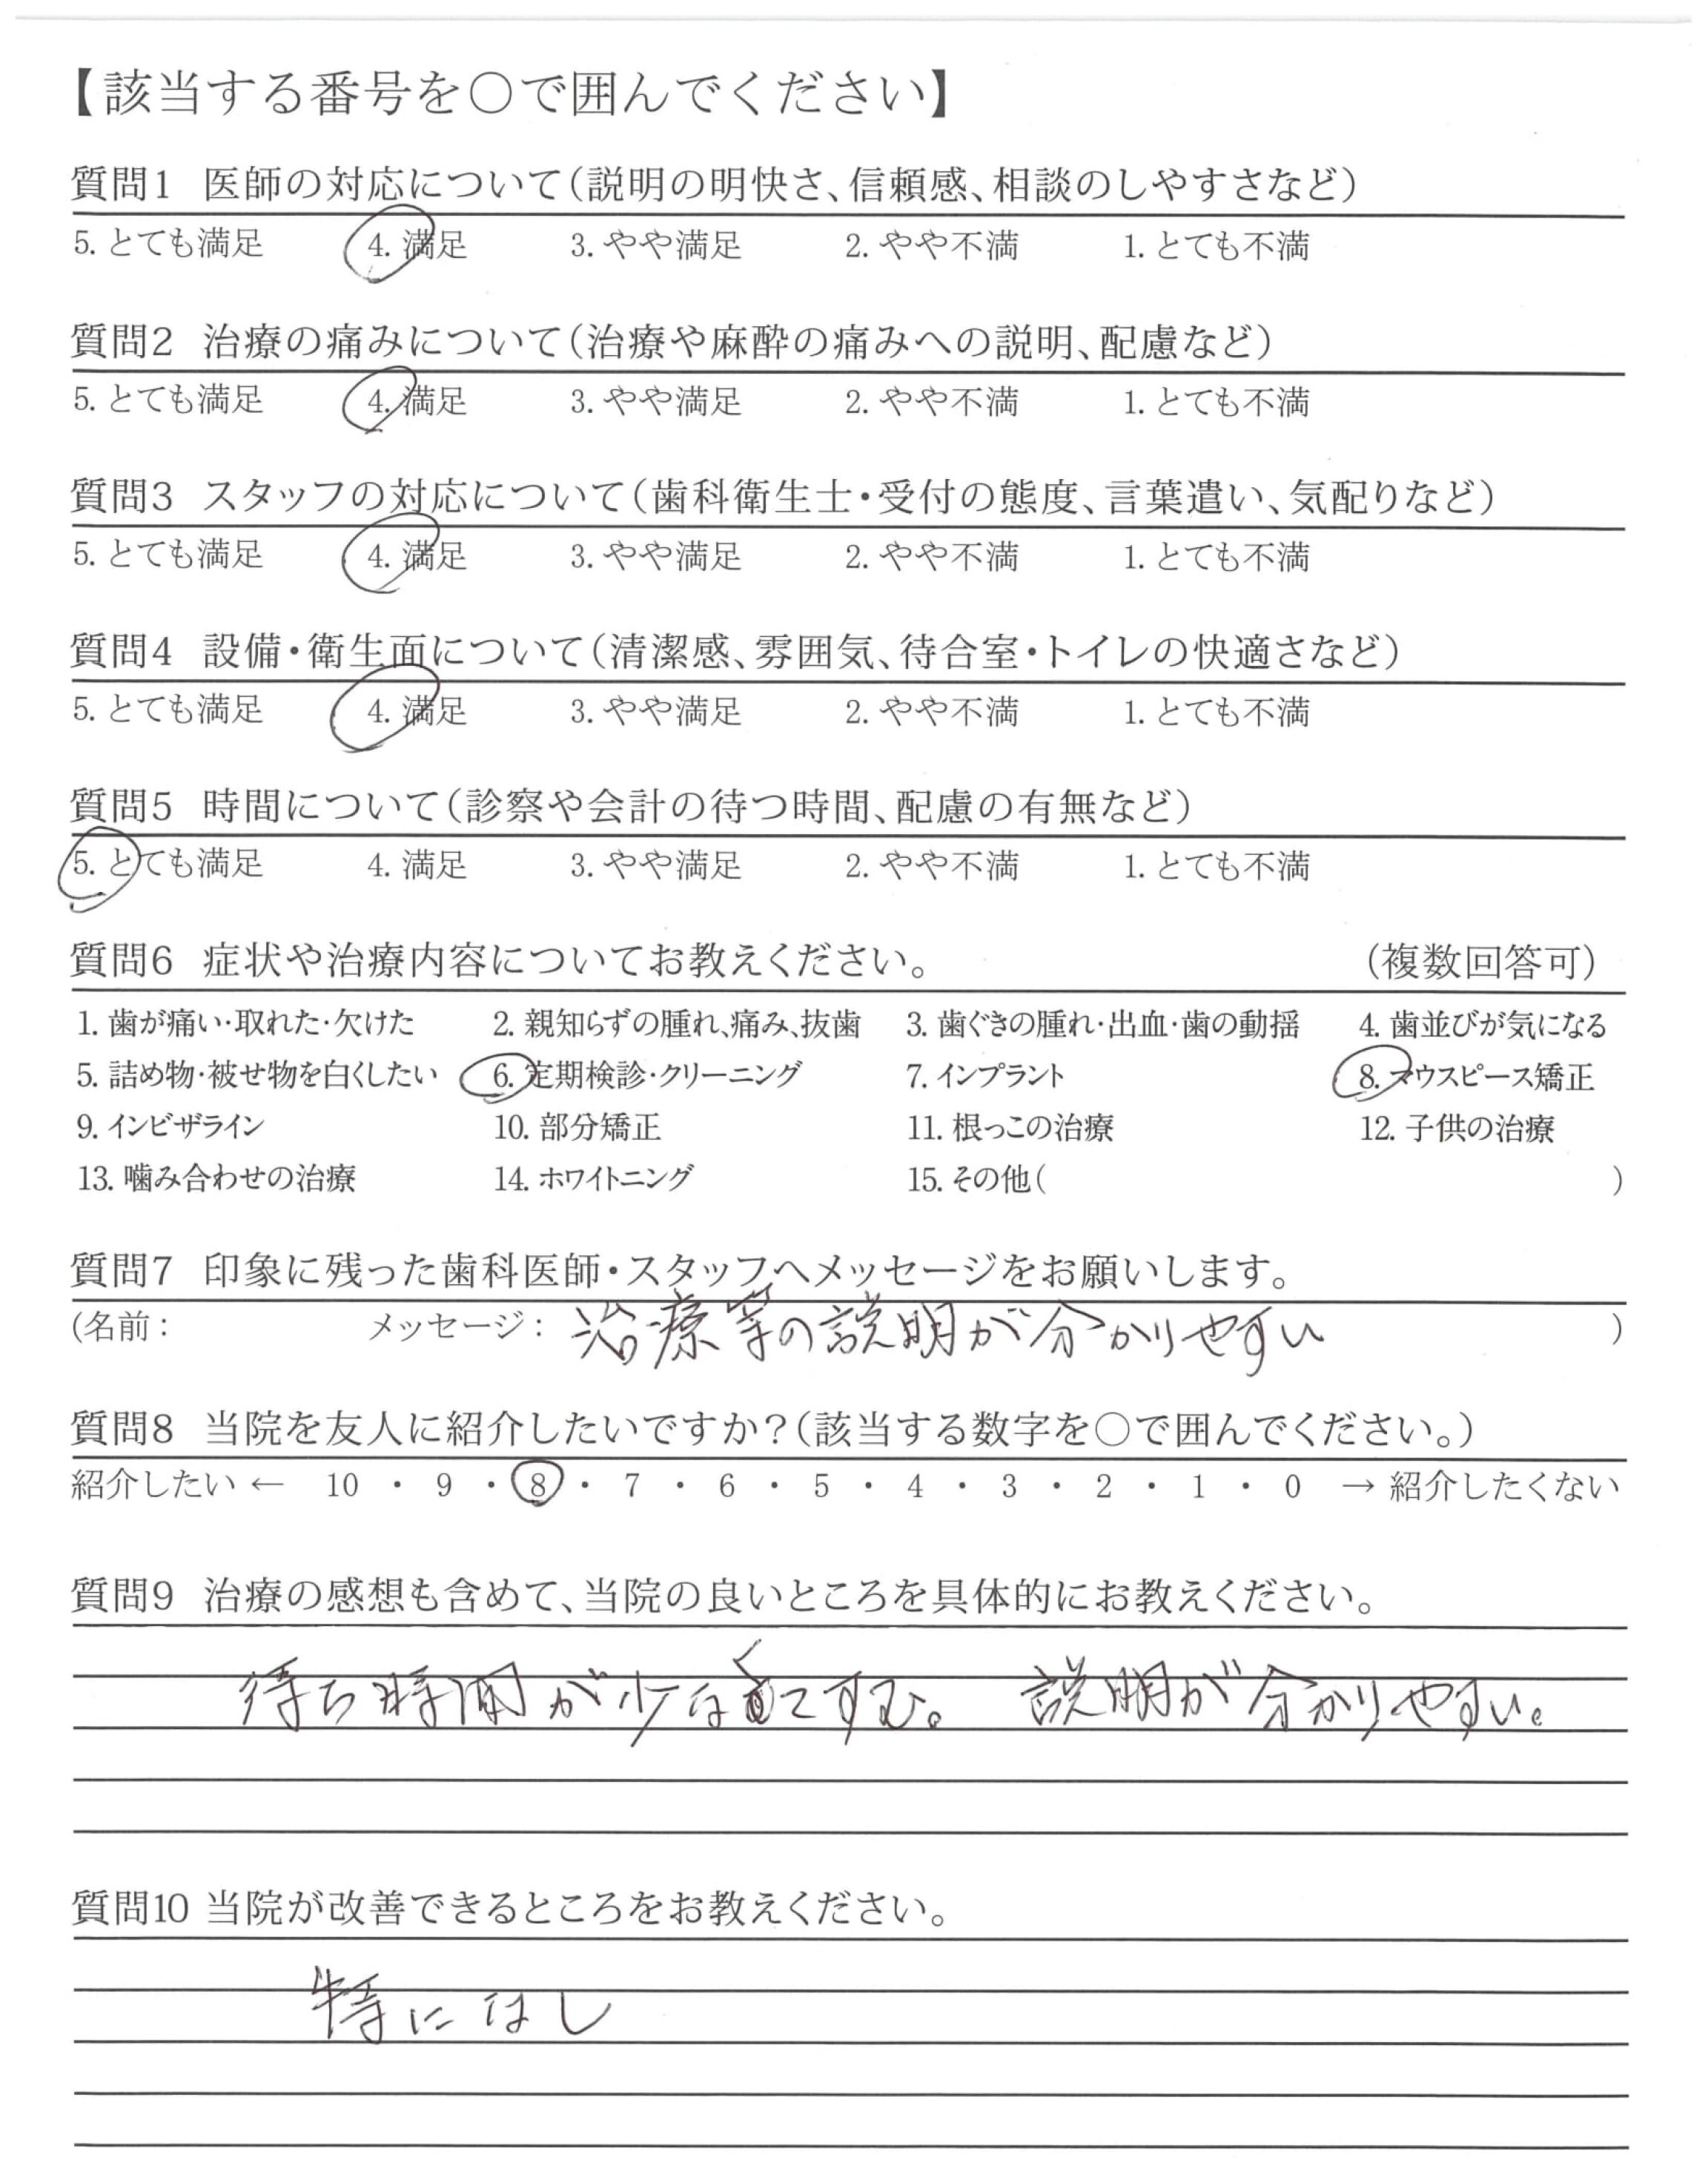 【該当する番号を○で囲んでください】
質問1 医師の対応について(説明の明快さ、信頼感、相談のしやすさなど)
5. とても満足 4. 満足 3. やや満足 2. やや不満 1. とても不満
質問2 治療の痛みについて(治療や麻酔の痛みへの説明、配慮など)
5. とても満足 4. 満足 3. やや満足 2. やや不満 1. とても不満
質問3 スタッフの対応について(歯科衛生士・受付の態度、言葉遣い、気配りなど)
5. とても満足 4. 満足 3. やや満足 2. やや不満 1. とても不満
質問4 設備・衛生面について(清潔感、雰囲気、待合室・トイレの快適さなど)
5. とても満足 4. 満足 3. やや満足 2. やや不満 1. とても不満
質問5 時間について(診察や会計の待つ時間、配慮の有無など)
5. とても満足 4. 満足 3. やや満足 2. やや不満 1. とても不満
質問6 症状や治療内容についてお教えください。 (複数回答可)
1. 歯が痛い・取れた・欠けた 2. 親知らずの腫れ、痛み、抜歯 3. 歯ぐきの腫れ・出血・歯の動揺 4. 歯並びが気になる
5. 詰め物・被せ物を白くしたい 6. 定期検診・クリーニング 7. インプラント 8. マウスピース矯正
9. インビザライン 10. 部分矯正 11. 根っこの治療 12. 子供の治療
13. 噛み合わせの治療 14. ホワイトニング 15. その他( )
質問7 印象に残った歯科医師・スタッフへメッセージをお願いします。
(名前: メッセージ: 治療等の説明が分かりやすい )
質問8 当院を友人に紹介したいですか?(該当する数字を○で囲んでください。)
紹介したい ← 10 ・ 9 ・ 8 ・ 7 ・ 6 ・ 5 ・ 4 ・ 3 ・ 2 ・ 1 ・ 0 → 紹介したくない
質問9 治療の感想も含めて、当院の良いところを具体的にお教えください。
待ち時間が少なくてすむ。 説明が分かりやすい。
質問10 当院が改善できるところをお教えください。
特になし